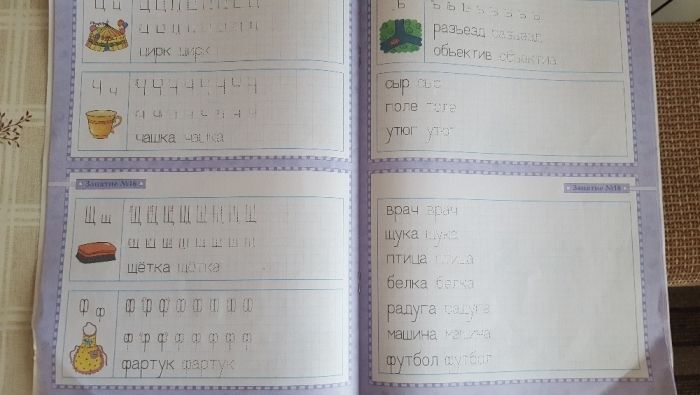 Ц ц Ц Ц Ц Ц Ц Ц Ц Ц
ц ц ц ц ц ц ц ц
цирк цирк
Ч ч Ч Ч Ч Ч Ч Ч Ч Ч
ч ч ч ч ч ч ч ч
чашка чашка
Занятие №16
Щ щ Щ Щ Щ Щ Щ Щ Щ Щ
щ щ щ щ щ щ щ щ
щётка щётка
Ф ф Ф Ф Ф Ф Ф Ф Ф Ф
ф ф ф ф ф ф ф ф
фартук фартук
ъ ъ ъ ъ ъ ъ ъ ъ ъ
разъезд разъезд
объектив объектив
сыр сыр
поле поле
утюг утюг
Занятие №18
врач врач
щука щука
птица птица
белка белка
радуга радуга
машина машина
футбол футбол